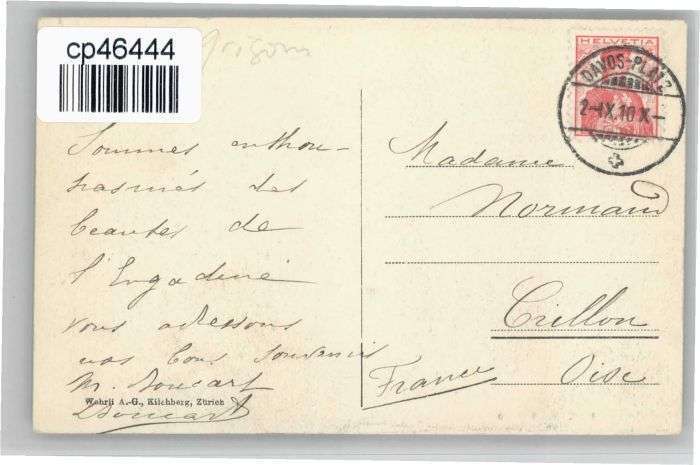 cp46444
HELVETIA
DAVOS-PLATZ
2-IX.10 X-
Sommes enthou-
siasmés des
beautés de
l'Engadine
vous adressons
nos bons souvenirs
M. Doucart
Doucart
Wehrli A.-G., Kilchberg, Zürich
Madame
Normand
Crillon
Oise
France